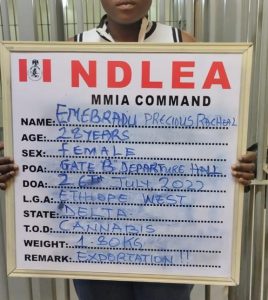 NDLEA
MMIA COMMAND
NAME: EMEBRADU PRECIOUS RACHEAL
AGE: 28 YEARS
SEX: FEMALE
POA: GATE B, DEPARTURE HALL
DOA: JULY 2022
L.G.A: ETHIOPE WEST
STATE: DELTA
T.O.D: CANNABIS
WEIGHT: 1.80KG
REMARK: EXPORTATION!!